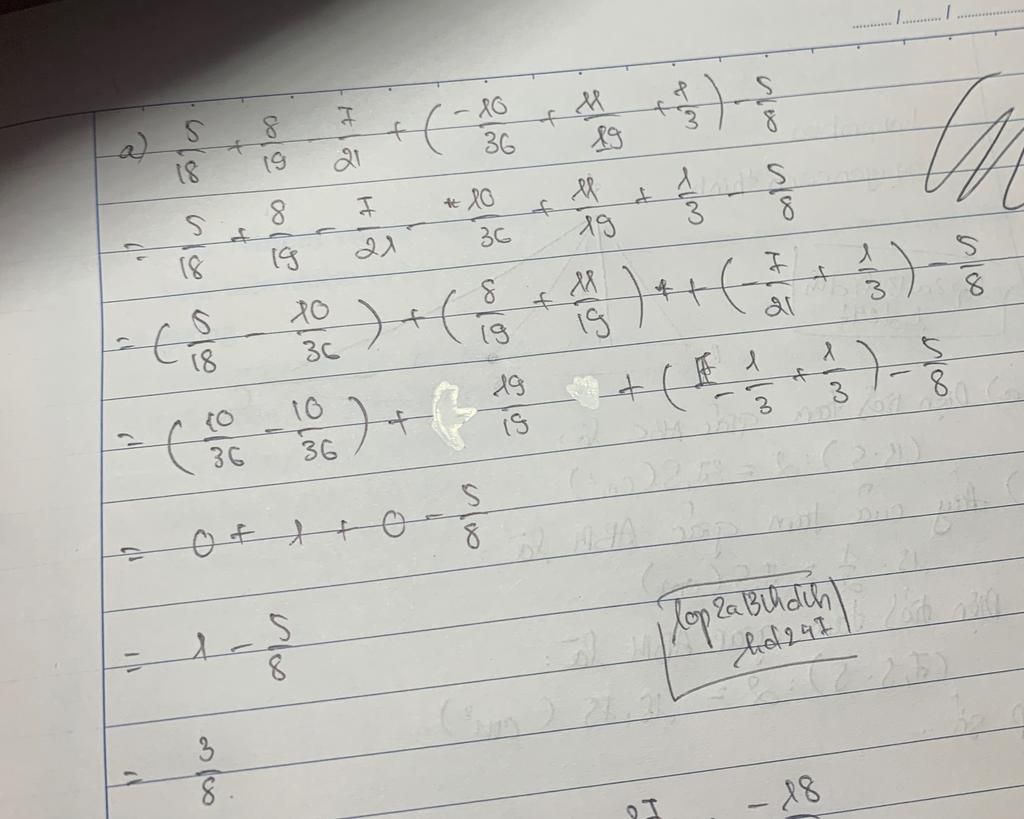 ...../...../.....
a) 5/18 + 8/19 - 7/21 + (-10/36 + 11/19 + 1/3) - 5/8
= 5/18 + 8/19 - 7/21 - 10/36 + 11/19 + 1/3 - 5/8
= (5/18 - 10/36) + (8/19 + 11/19) + (-7/21 + 1/3) - 5/8
= (10/36 - 10/36) + 19/19 + (-1/3 + 1/3) - 5/8
= 0 + 1 + 0 - 5/8
= 1 - 5/8
= 3/8.
-18